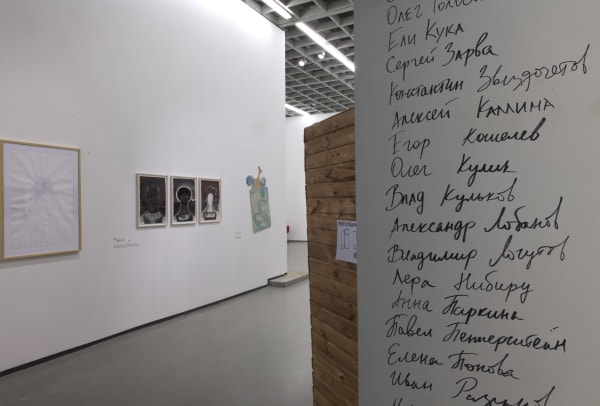 Олег
Ели Кука
Сергей Зарва
Константин Звездочетов
Алексей Каллима
Егор Кошелев
Олег Кулик
Влад Кульков
Александр Лобанов
Владимир Логутов
Лера Нибиру
Анна Паркина
Павел Пепперштейн
Елена Попова
Иван